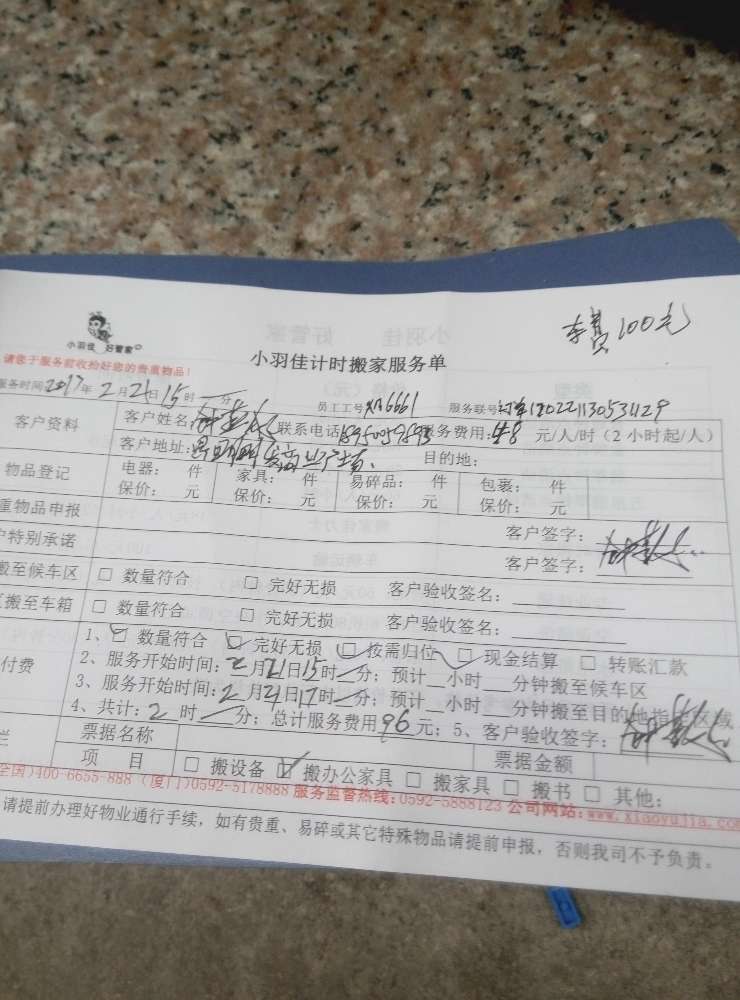 车费100元
小羽佳 好管家
小羽佳计时搬家服务单
请您于服务前收拾好您的贵重物品!
服务时间:2017年2月21日15时 分 员工工号 6661 服务联号
客户资料 客户姓名: 联系电话 服务费用:48 元/人/时(2小时起/人)
客户地址: 目的地:
物品登记 电器: 件 家具: 件 易碎品: 件 包裹: 件
保价: 元 保价: 元 保价: 元 保价: 元
重物品申报 客户签字:
户特别承诺 客户签字:
搬至候车区 □ 数量符合 □ 完好无损 客户验收签名:
搬至车箱 □ 数量符合 □ 完好无损 客户验收签名:
1、☑ 数量符合 ☑ 完好无损 ☑ 按需归位 ☑ 现金结算 □ 转账汇款
付费 2、服务开始时间:2月21日15时 分;预计 小时 分钟搬至候车区
3、服务开始时间:2月21日17时 分;预计 小时 分钟搬至目的地指定区域
4、共计:2 时 分;总计服务费用96元;5、客户验收签字:
栏 票据名称 票据金额
项 目 □ 搬设备 ☑ 搬办公家具 □ 搬家具 □ 搬书 □ 其他:
全国)400-6655-888 (厦门)0592-5178888 服务监督热线:0592-5888123 公司网站:www.xiaoyujia.com
请提前办理好物业通行手续,如有贵重、易碎或其它特殊物品请提前申报,否则我司不予负责。